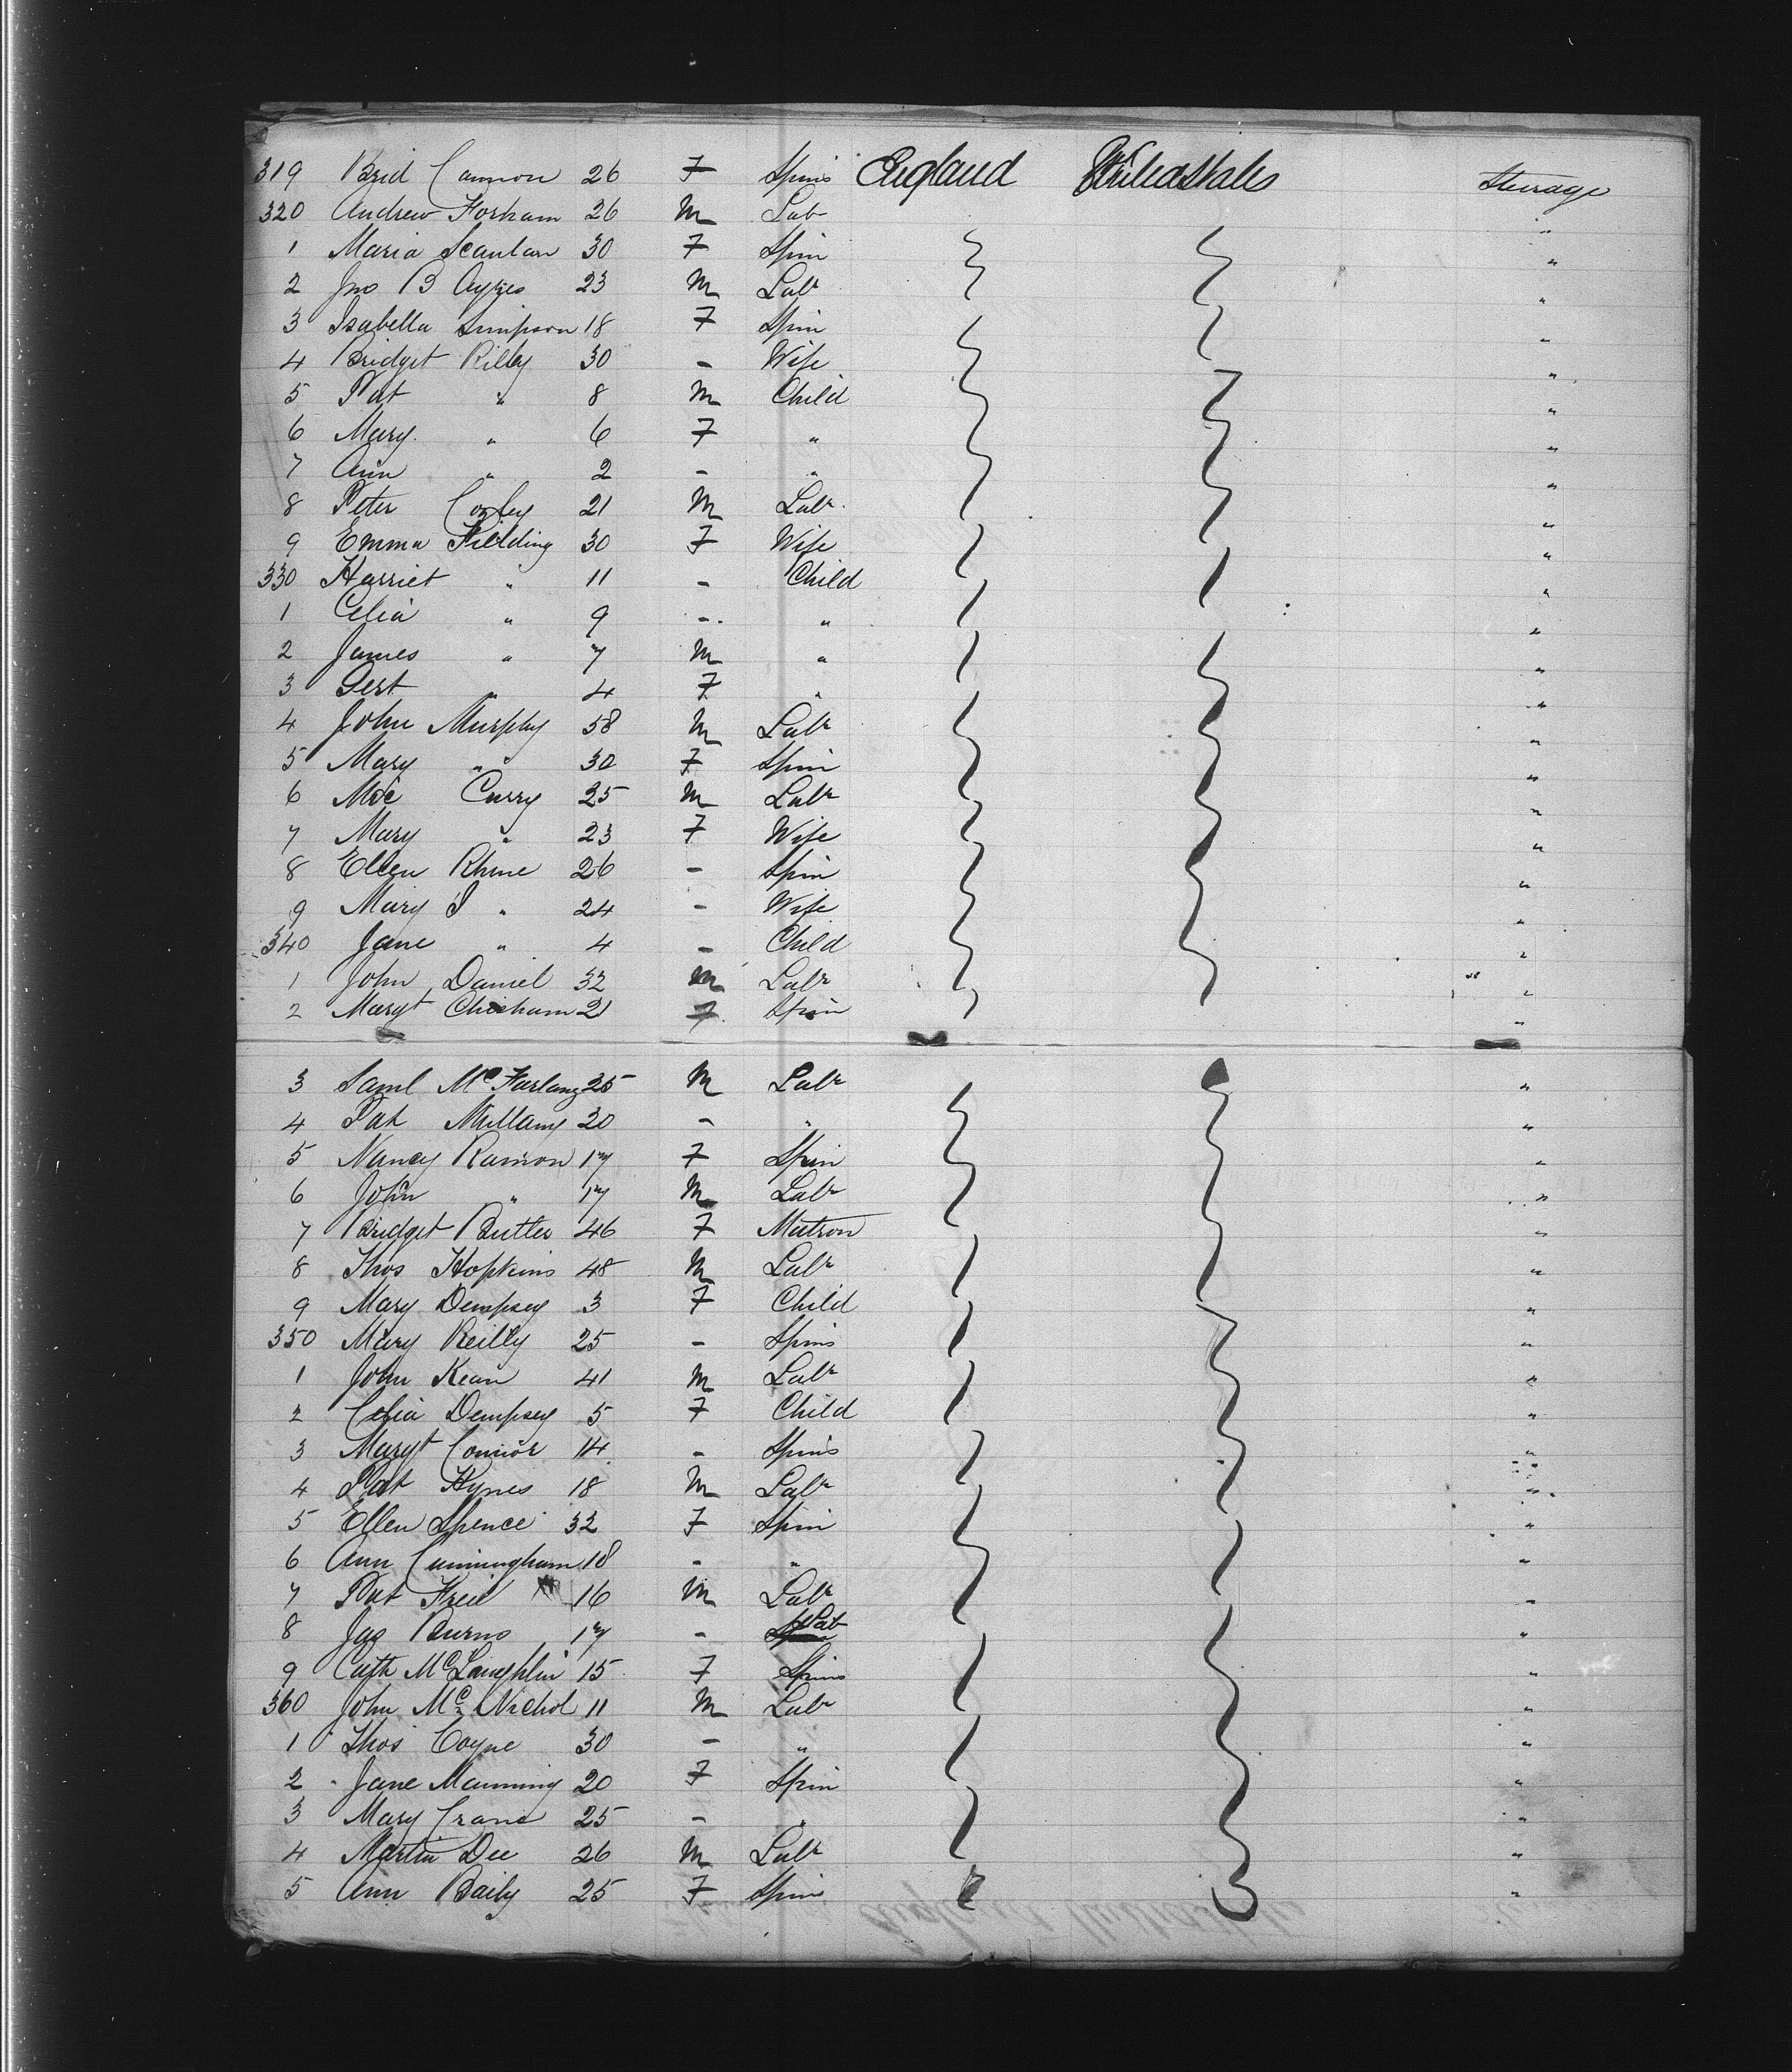 319 Brid Cannon 26 F Spins England United States Steerage
320 Andrew Forham 26 M Lab "
1 Maria Scanlan 30 F Spin "
2 Jno B Ayres 23 M Labr "
3 Isabella Simpson 18 F Spin "
4 Bridget Rilly 30 - Wife "
5 Pat " 8 M Child "
6 Mary " 6 F " "
7 Ann " 2 - " "
8 Peter 21 M Labr "
9 Emma Fielding 30 F Wife "
330 Harriet " 11 - Child "
1 Celia " 9 - " "
2 James " 7 M " "
3 Gert " 4 F " "
4 John Murphy 58 M Labr "
5 Mary " 30 F Spin "
6 Curry 25 M Labr "
7 Mary " 23 F Wife "
8 Ellen Rhine 26 - Spin "
9 Mary S " 24 - Wife "
340 Jane " 4 - Child "
1 John Daniel 32 M Labr "
2 Margt 21 F Spin "
3 Saml McFarlane 25 M Labr "
4 Pat Mullany 20 - " "
5 Nancy 17 F Spin "
6 John " 17 M Labr "
7 Bridget Butler 46 F Matron "
8 Thos Hopkins 48 M Labr "
9 Mary Dempsey 3 F Child "
350 Mary Reilly 25 - Spins "
1 John Kean 41 M Labr "
2 Celia Dempsey 5 F Child "
3 Margt Connor 14 - Spins "
4 Pat Hynes 18 M Labr "
5 Ellen Spence 32 F Spin "
6 Ann Cunningham 18 - " "
7 Pat 16 M Labr "
8 Jas Burns 17 - Lab "
9 Cath McLaughlin 15 F Spins "
360 John McNichol 11 M Labr "
1 Thos Coyne 30 - " "
2 Jane Manning 20 F Spin "
3 Mary Crane 25 - " "
4 Martin Dee 26 M Labr "
5 Ann Baily 25 F Spins "